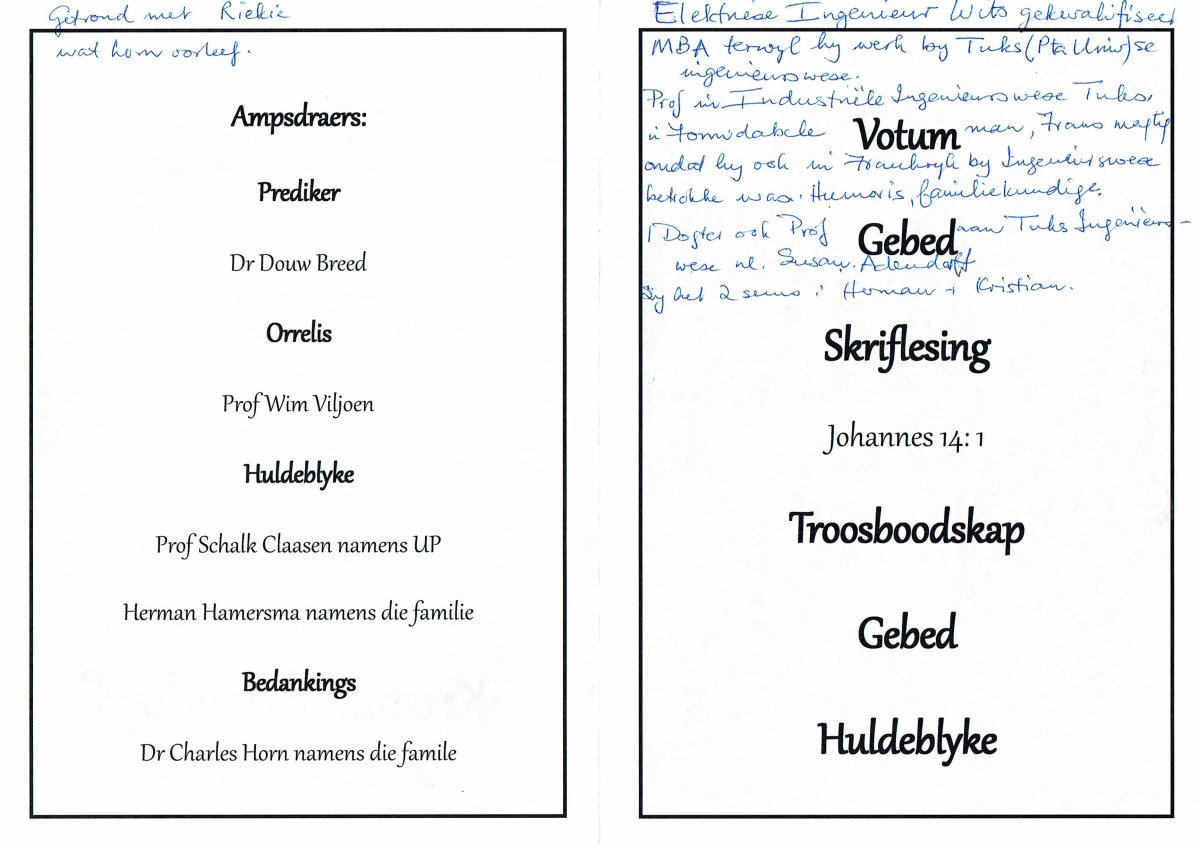 Getroud met Riekie
wat hom oorleef.
Ampsdraers:
Prediker
Dr Douw Breed
Orrelis
Prof Wim Viljoen
Huldeblyke
Prof Schalk Claasen namens UP
Herman Hamersma namens die familie
Bedankings
Dr Charles Horn namens die famile
Elektriese Ingenieur Wits gekwalifiseer
MBA terwyl hy werk by Tuks (Pta Univ) se
ingenieurswese.
Prof in Industriële Ingenieurswese Tuks.
'n Formidabele man, Frans magtig
Votum
omdat hy ook in Frankryk by Ingenieurswese
betrokke was. Humoris, familiekundige.
1 Dogter ook Prof aan Tuks Ingenieurs-
Gebed
wese nl. Susan. Adendorff
Sy het 2 seuns : Herman + Kristian.
Skriflesing
Johannes 14: 1
Troosboodskap
Gebed
Huldeblyke